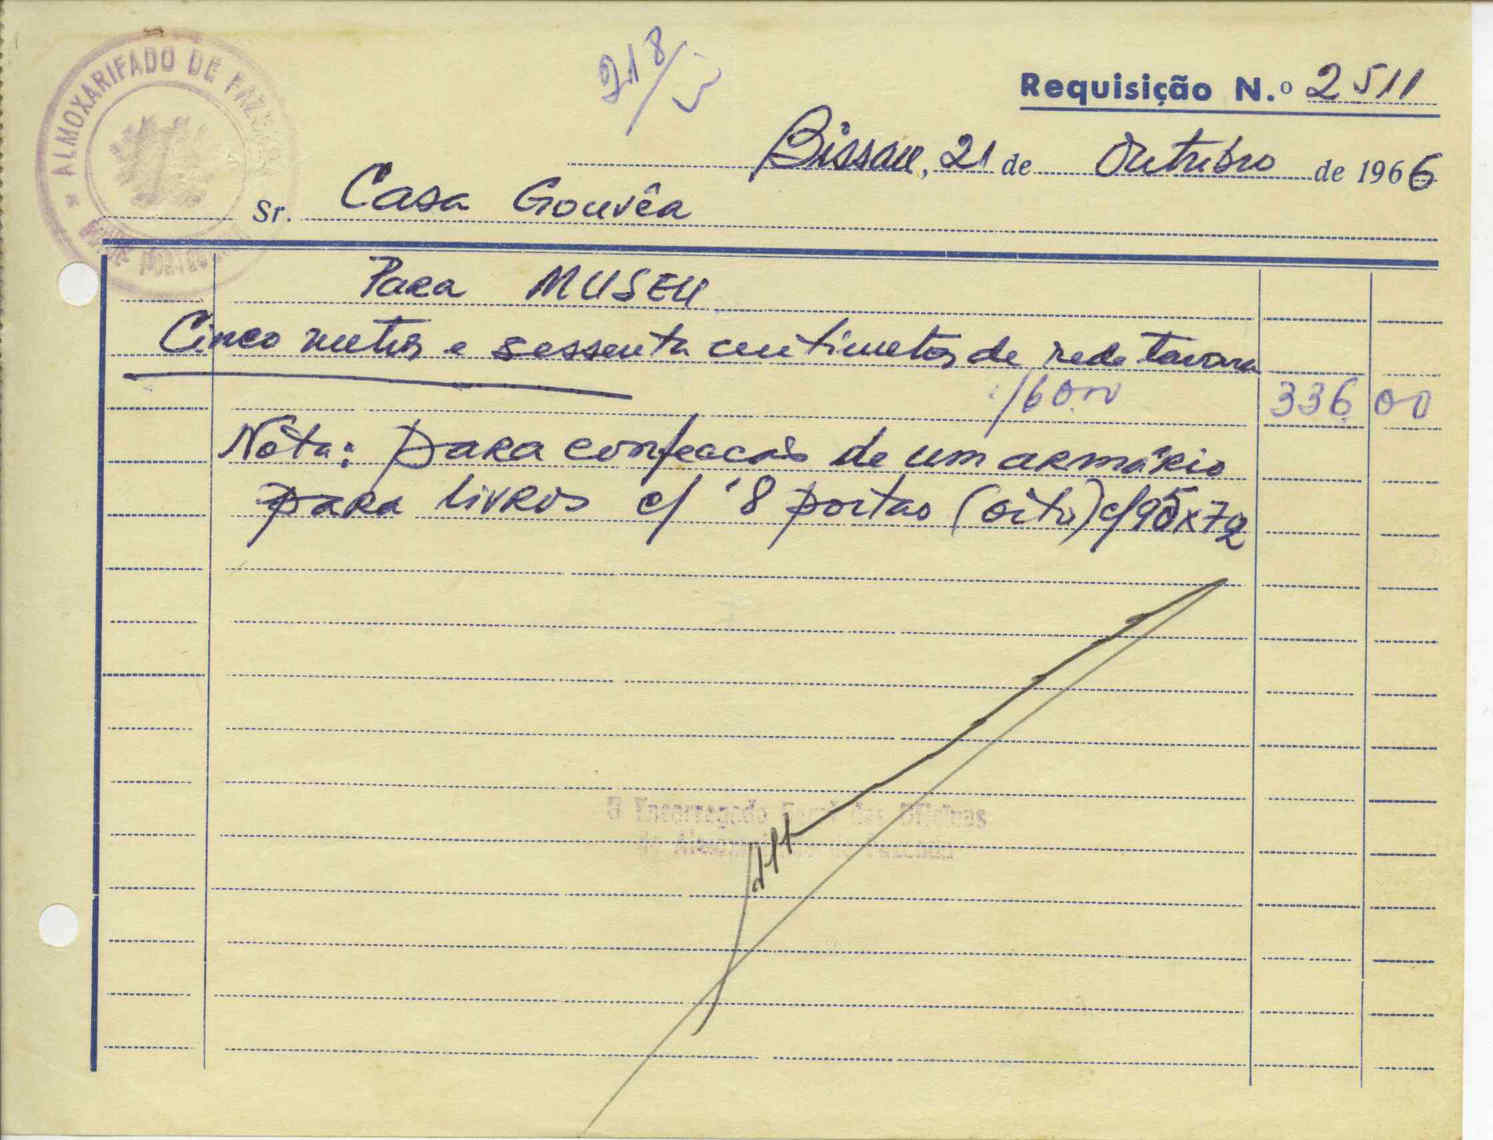 ALMOXARIFADO DE FAZENDA
GUINÉ PORTUGUESA
218/5
Requisição N.º 2511
Bissau, 21 de Outubro de 1966
Sr. Casa Gouvêa
Para MUSEU
Cinco metros e sessenta centimetros de rede
/60.00 336.00
Nóta: para confecaõ de um armário
para livros c/ 8 portas (oito) c/ 95x72
O Encarregado Geral das Oficinas
do Almoxarifado de Fazenda